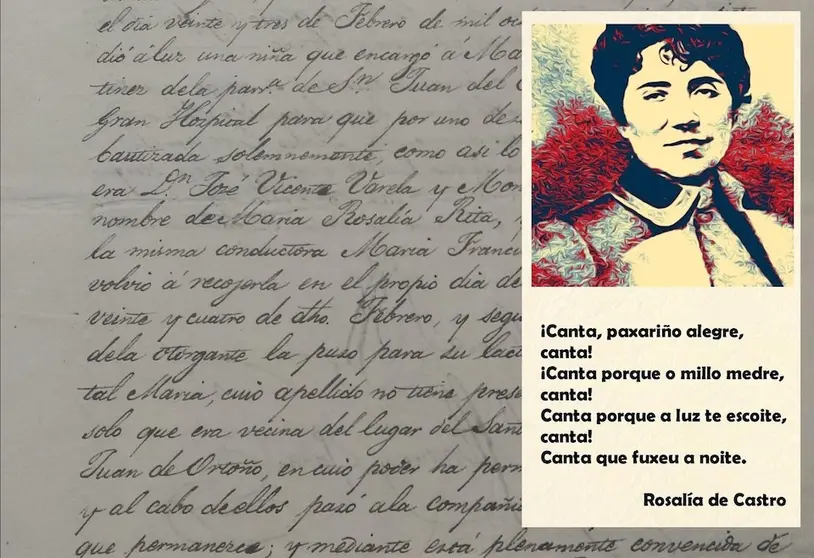 el dia veinte y tres de Febrero de mil
dió á luz una niña que encargó á
tinez de la parra. de Sn. Juan del
Gran Hospital para que por uno de
bautizada solemnemente, como asi lo
era Dn. José Vicente Varela y
nombre de Maria Rosalia Rita,
la misma conductora Maria
volvió á recojerla en el propio dia
veinte y cuatro de dho. Febrero, y
dela otorgante la puso para su
tal Maria, cuio apellido no tiene
solo que era vecina del lugar del
Juan de Ortoño, en cuio poder ha
y al cabo de ellos pasó ala
que permanerce; y mediante está plenamente convencida de
¡Canta, paxariño alegre,
canta!
¡Canta porque o millo medre,
canta!
Canta porque a luz te escoite,
canta!
Canta que fuxeu a noite.
Rosalía de Castro